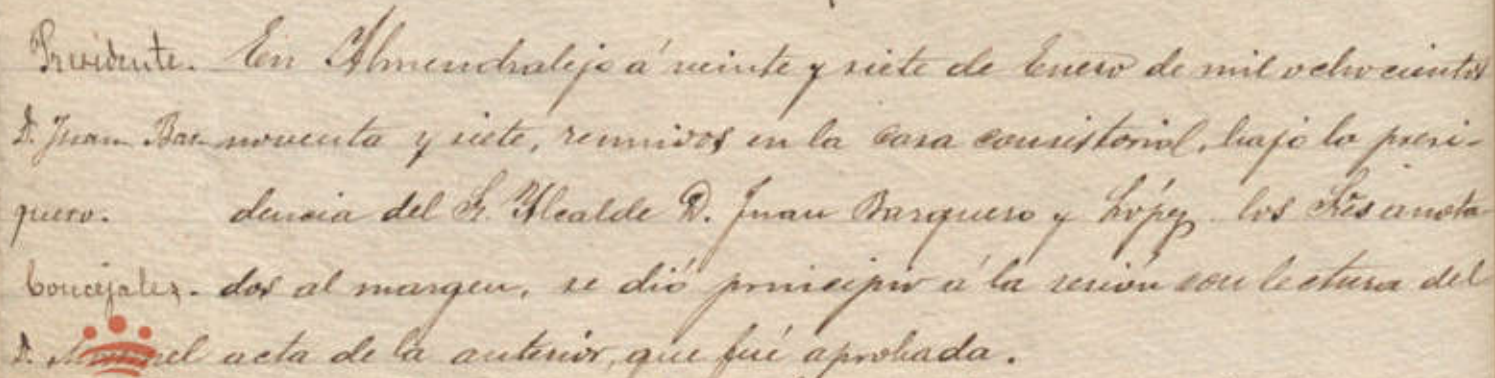 Presidente. En Almendralejo á veinte y siete de Enero de mil ochocientos
D. Juan Bar- noventa y siete, reunidos en la casa consistorial, bajo la presi-
quero. dencia del Sr. Alcalde D. Juan Barquero y López los Sres anota-
Concejales. dos al margen, se dió principio á la sesión con lectura del
D. acta de la anterior, que fué aprobada.